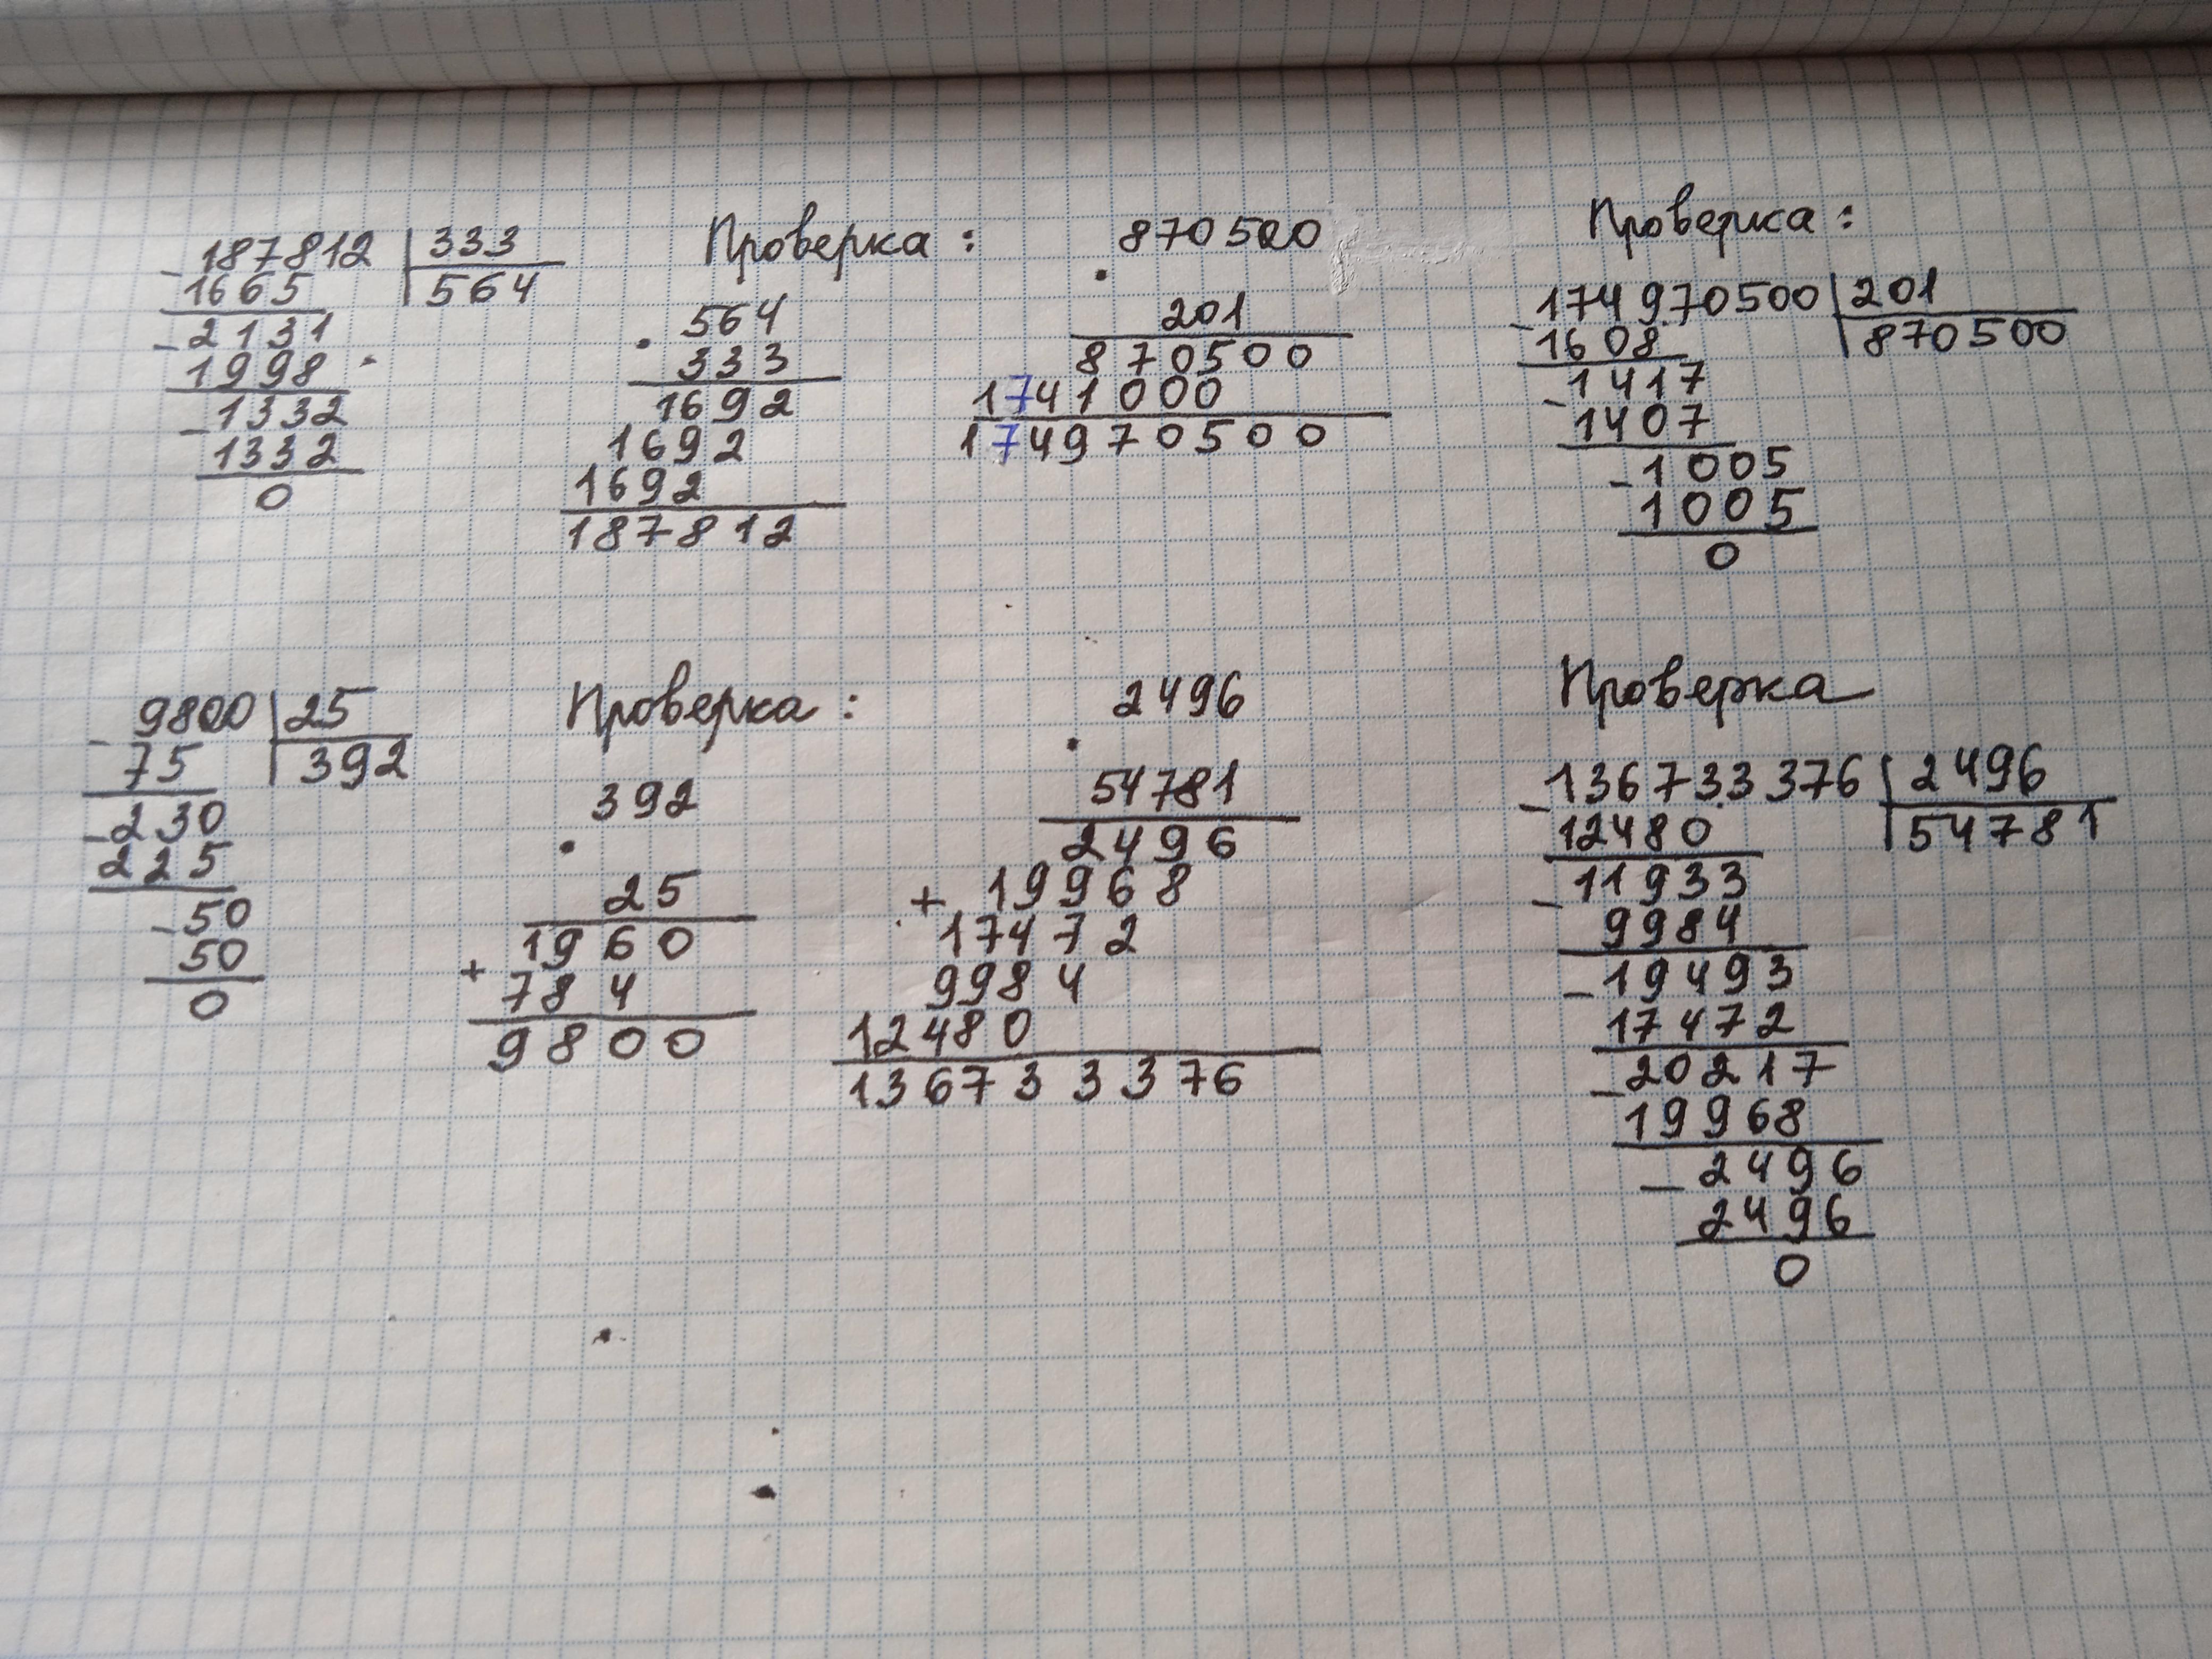 187812 | 333
- 1665 | 564
- 2131
1998
- 1332
1332
0
Проверка:
· 564
333
1692
1692
1692
187812
870500
·
201
870500
1741000
174970500
Проверка:
- 174970500 | 201
1608 | 870500
- 1417
1407
- 1005
1005
0
- 9800 | 25
75 | 392
- 230
225
- 50
50
0
Проверка:
392
·
25
1960
+
784
9800
2496
·
54781
2496
+ 19968
17472
9984
12480
136733376
Проверка
- 136733376 | 2496
12480 | 54781
- 11933
9984
- 19493
17472
- 20217
19968
- 2496
2496
0